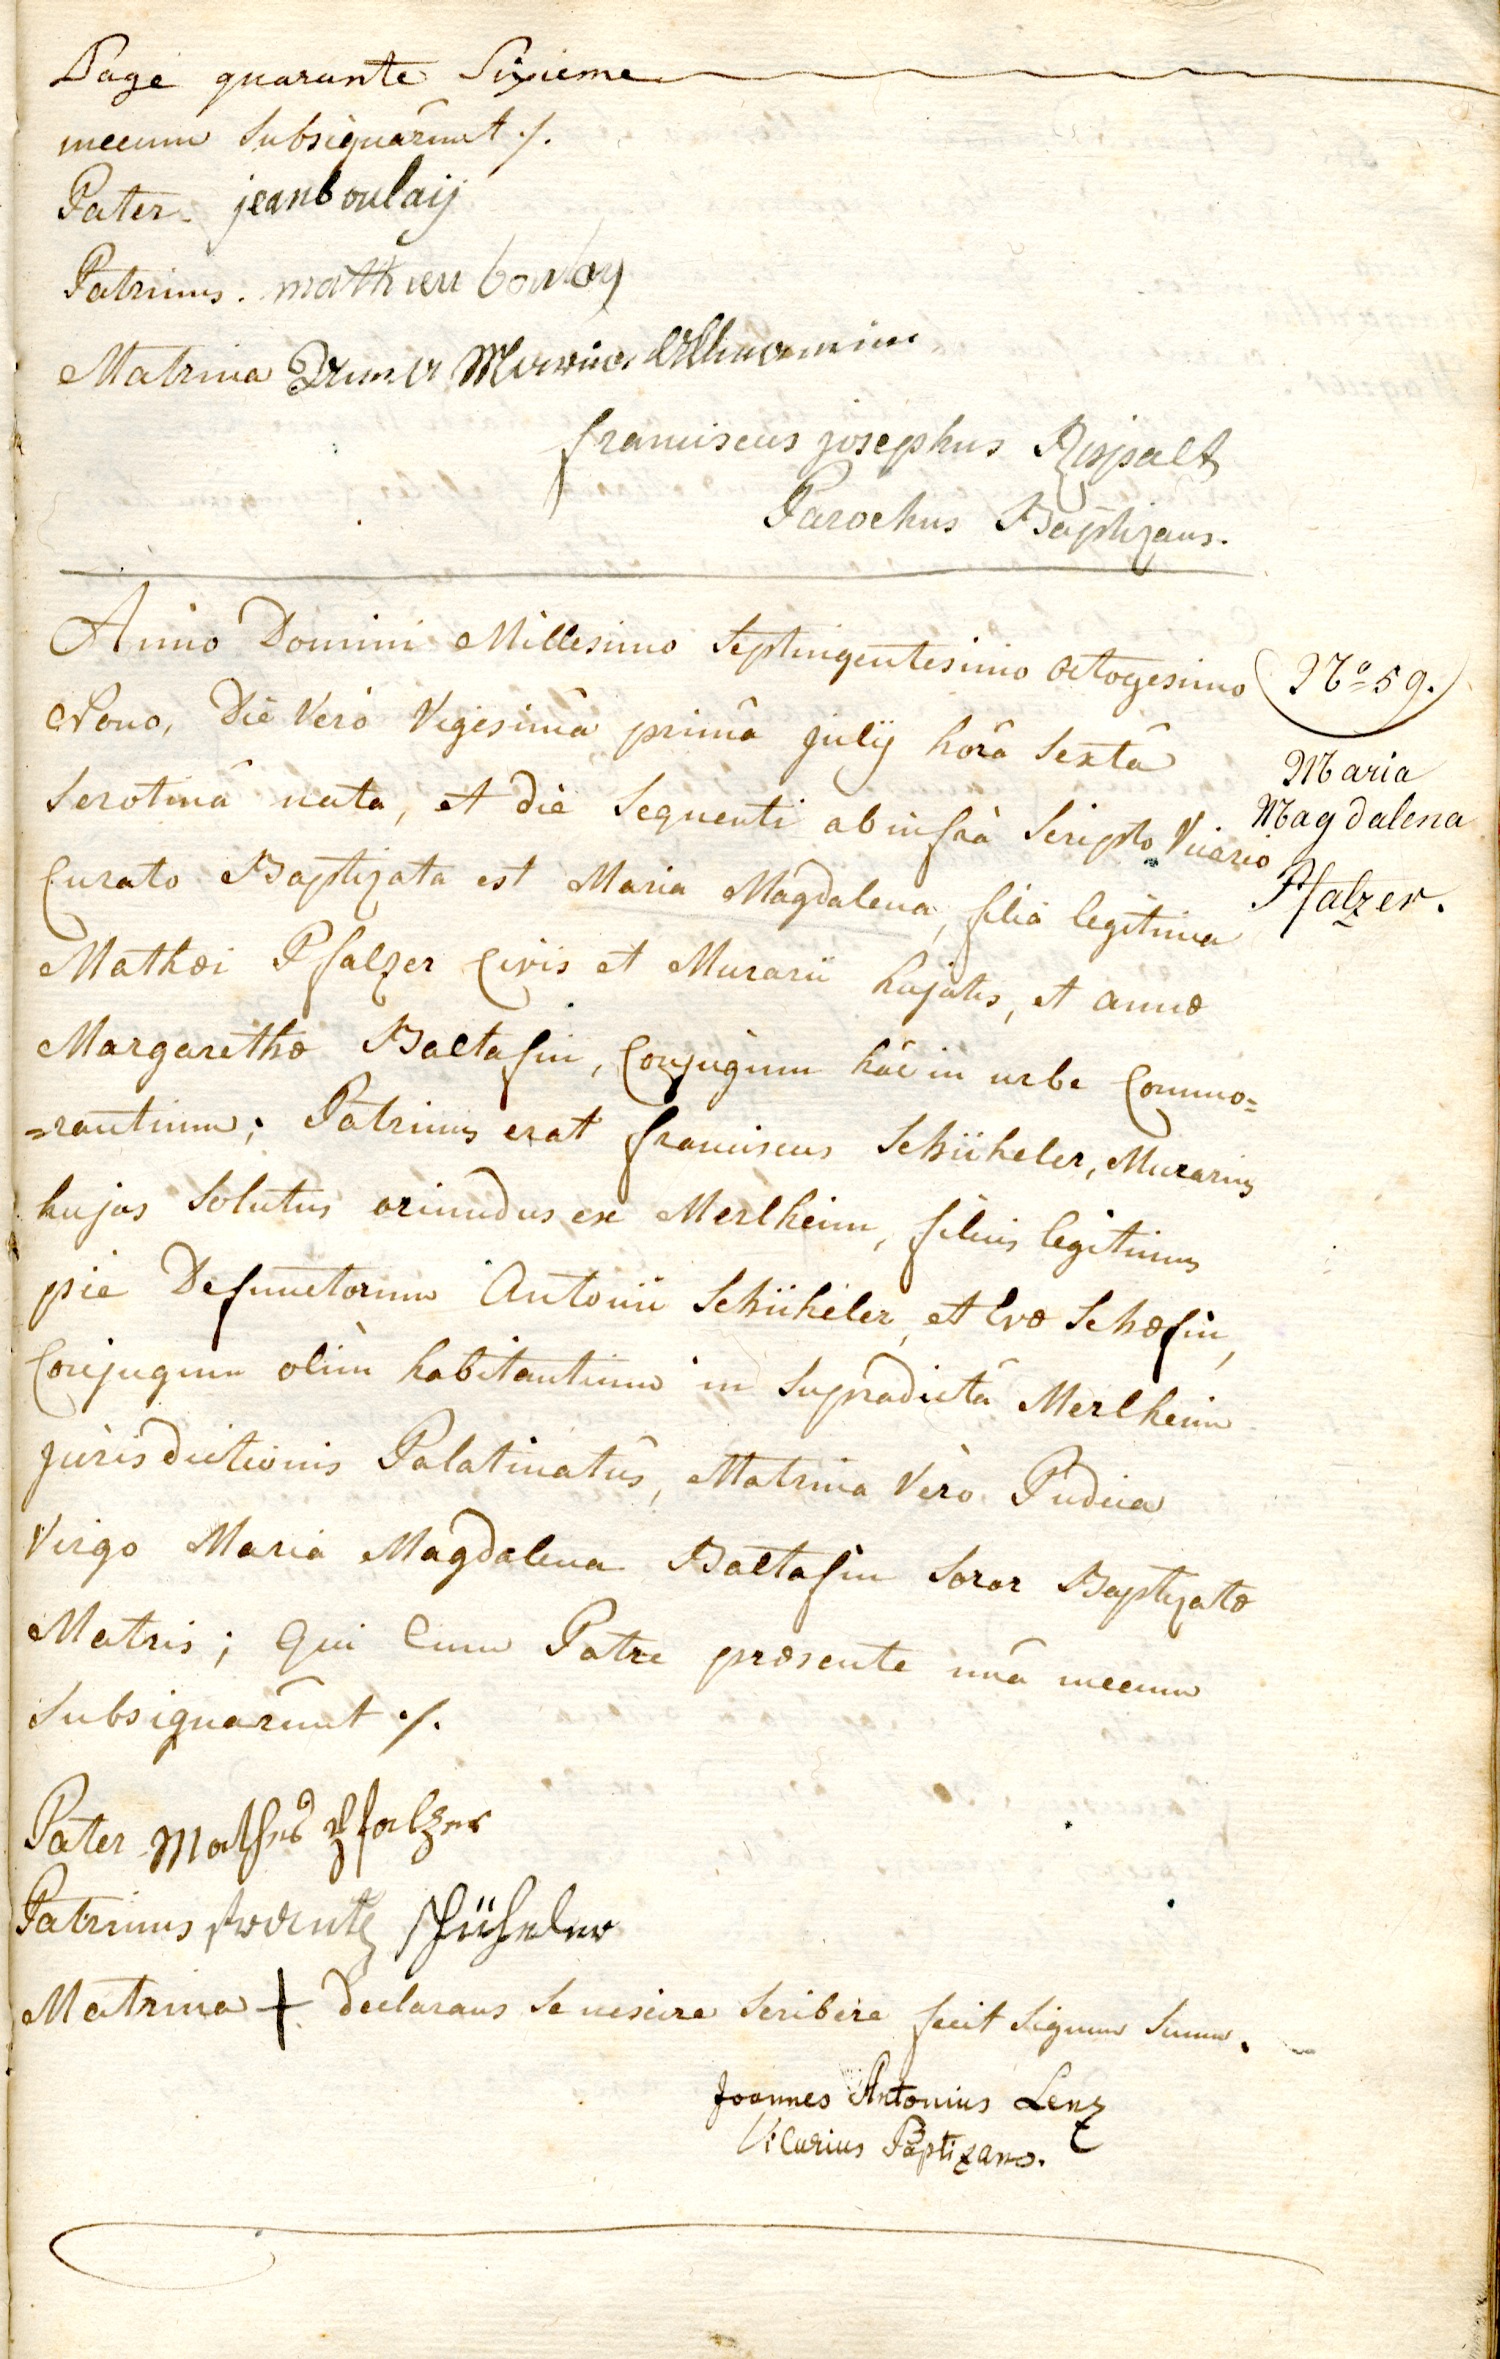 Page quarante Sixieme
mecum Subsignârunt ./.
Pater. jean boulaij
Patrinus. mathieu boulay
Matrina Maria
franciscus josephus
Parochus Baptizans.
Anno Domini Millesimo Septingentesimo octogesimo
Nono, Die Verò Vigesimâ primâ julij horâ Sextâ
Serotinâ nata, et die Sequenti ab infrà Scripto Vicario
Curato Baptizata est Maria Magdalena, filia legitima
Mathæi Pfalzer Civis et Murarii hujatis, et annæ
Margarethæ Baltasin, Conjugum hâc in urbe Commo=
=rantium; Patrinus erat franciscus Schüheler, Murarius
hujas Solutus oriundus ex Merlheim, filius legitimus
pie Defunctorum Antonii Schüheler, et Evæ Schæfin,
Conjugum olim habitantium in Supradictâ Merlheim
jurisdictionis Palatinatûs, Matrina Verò Pudica
Virgo Maria Magdalena Baltasin Soror Baptizatæ
Matris; Qui Cum Patre præsente unâ mecum
Subsignârunt ./.
Pater Mathes Pfalzer
Patrinus frantz schüheler
Matrina + declarans Se nescire Scribere fecit Signum Suum.
Joannes Antonius Lenz
Vicarius Baptizans.
No 59.
Maria
Magdalena
Pfalzer.